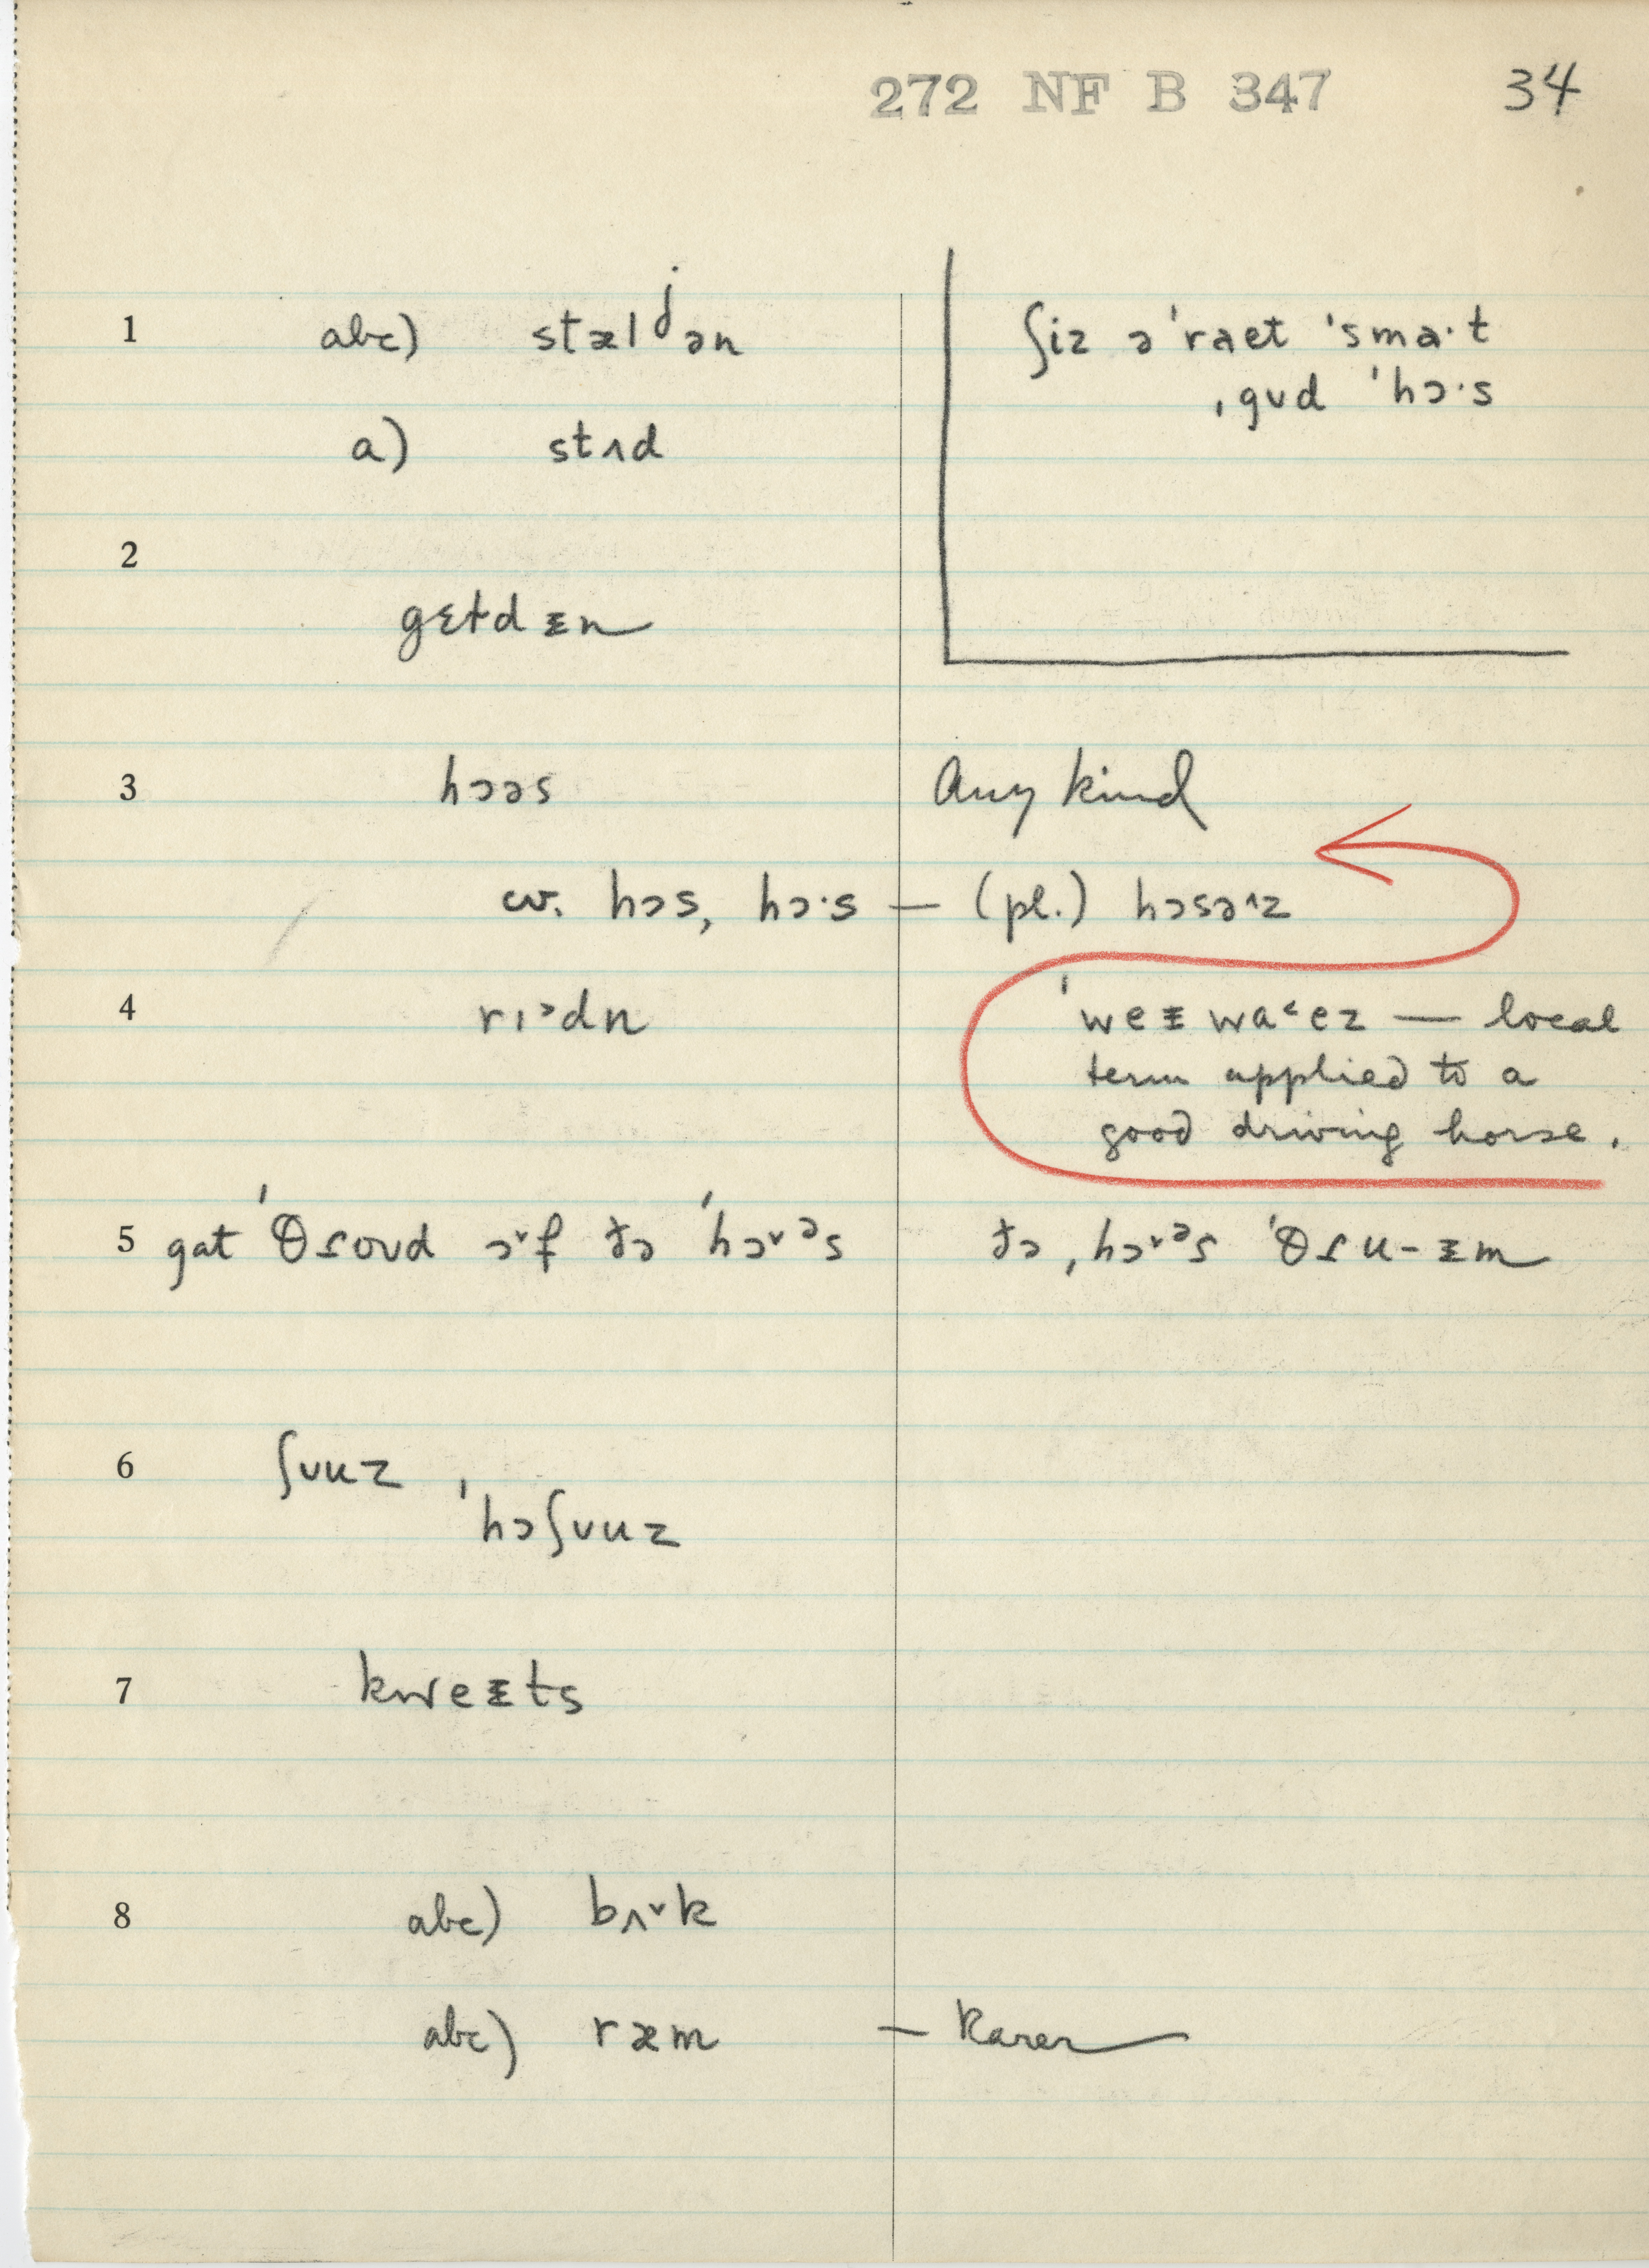 272 NF B 347 34
1 abc) stælʲən
ʃiz ə ˈraet ˈsmaˑt
ˌgʊd ˈhɔˑs
a) stʌd
2
gɛtdᵻn
3 hɔəs Any kind
cv. hɔs, hɔˑs — (pl.) hɔsəᶺz
4 rɪᵓdn
ˈweᵻwa˂ez — local
term applied to a
good driving horse.
5 gat ˈθɾoʊd ɔ˅f ðə ˈhɔ˅ᵊs ðə ˌhɔ˅ᵊs ˈθɾu-ᵻm
6 ʃʊuz,
ˈhɔʃʊuz
7 kweᵻts
8 abc) bʌ˅k
abc) ræm — Rarer